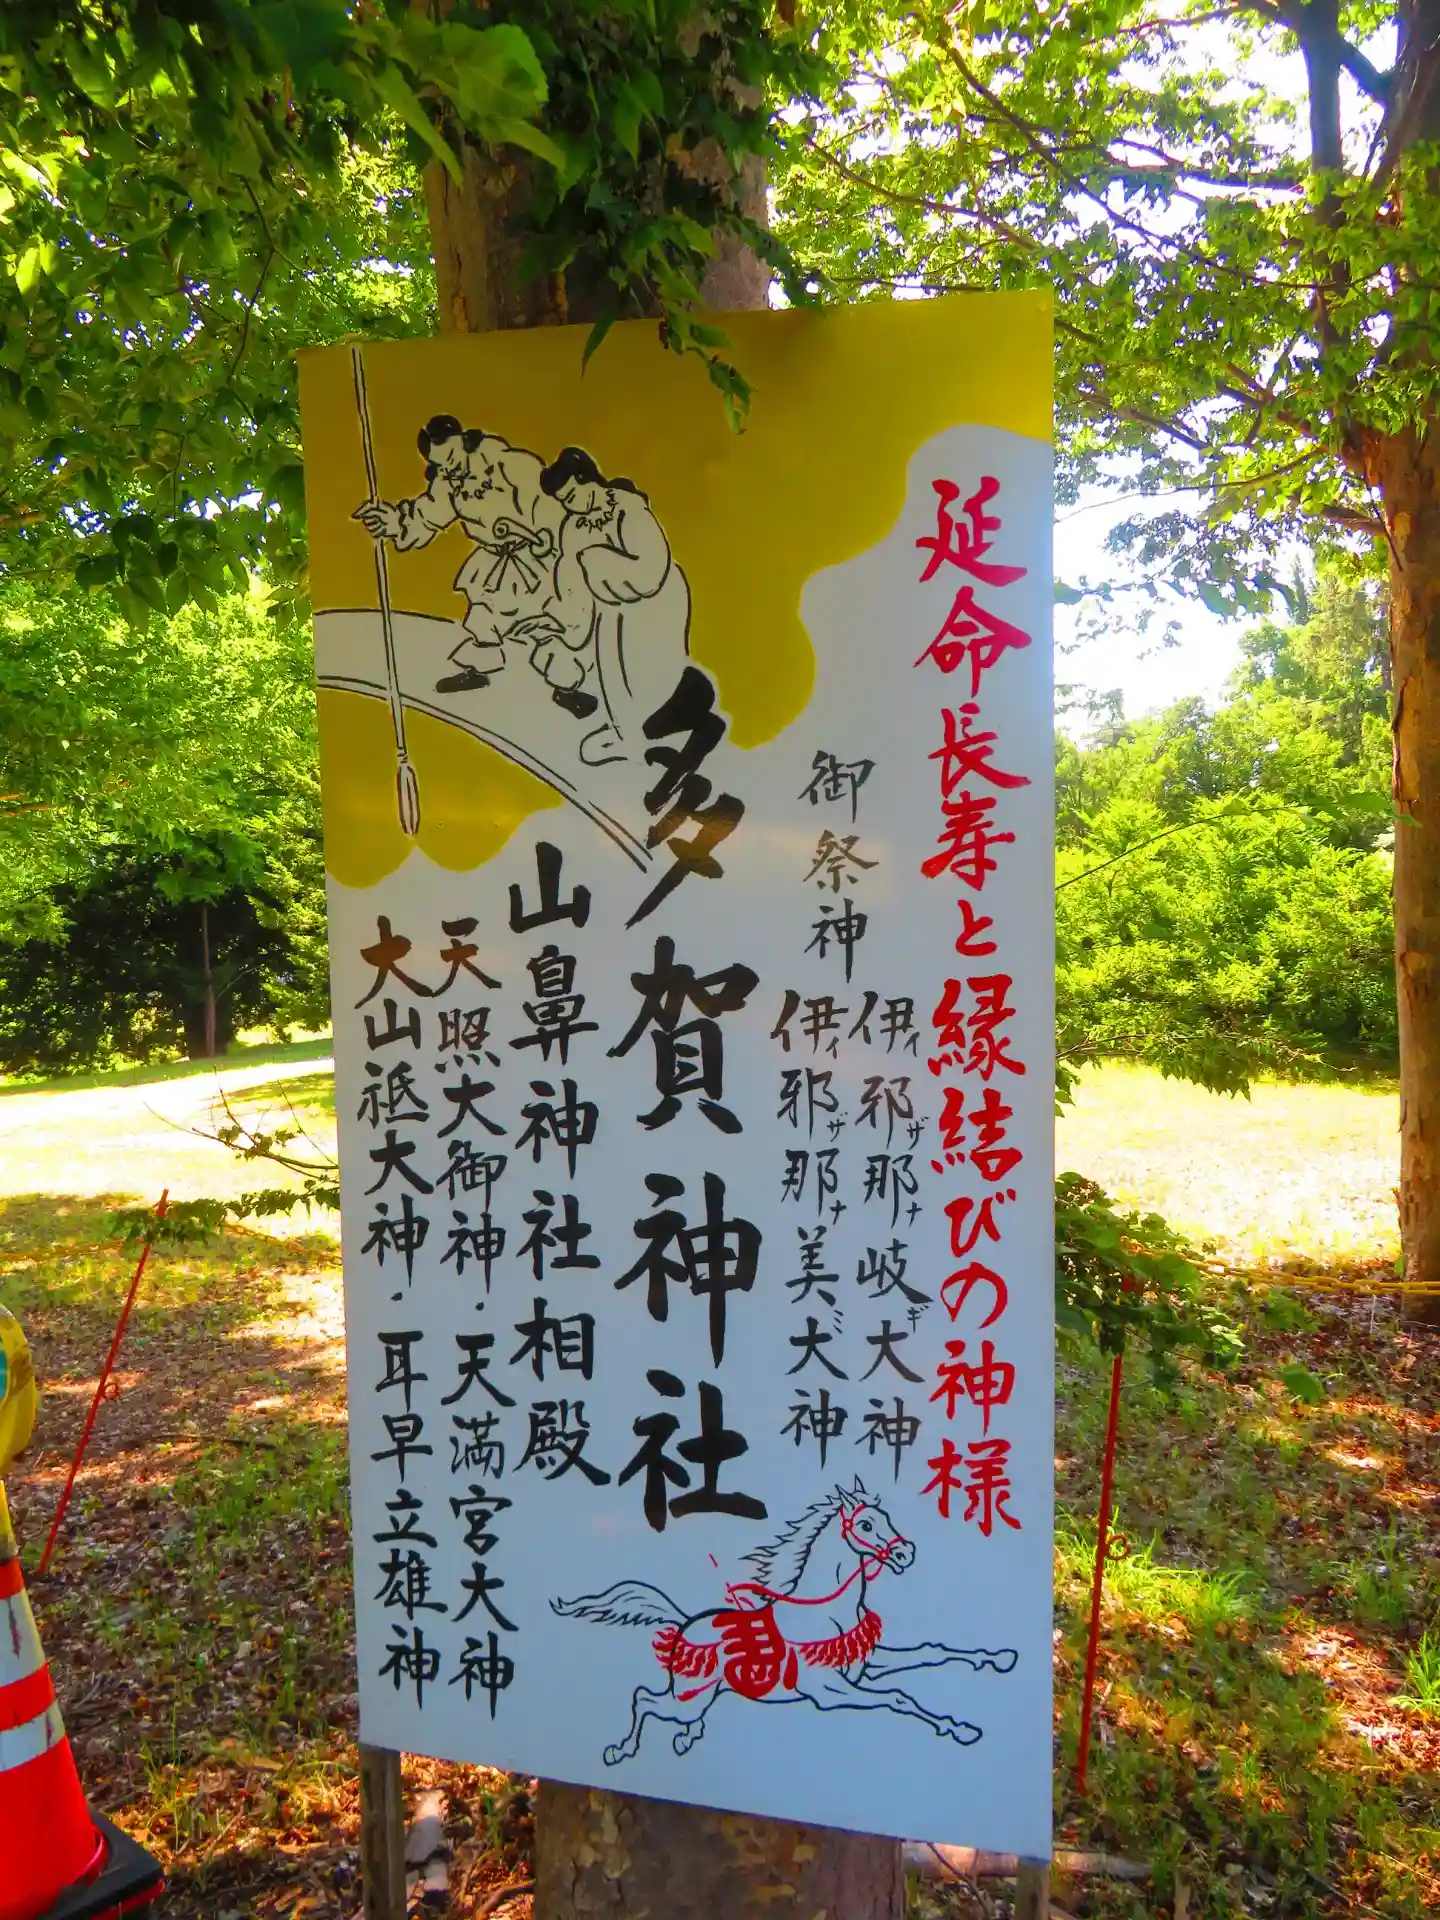 延命長寿と縁結びの神様
御祭神
伊イ邪ザ那ナ岐ギ大神
伊イ邪ザ那ナ美ミ大神
多賀神社
山鼻神社相殿
天照大御神・天満宮大神
大山祗大神・耳早立雄神